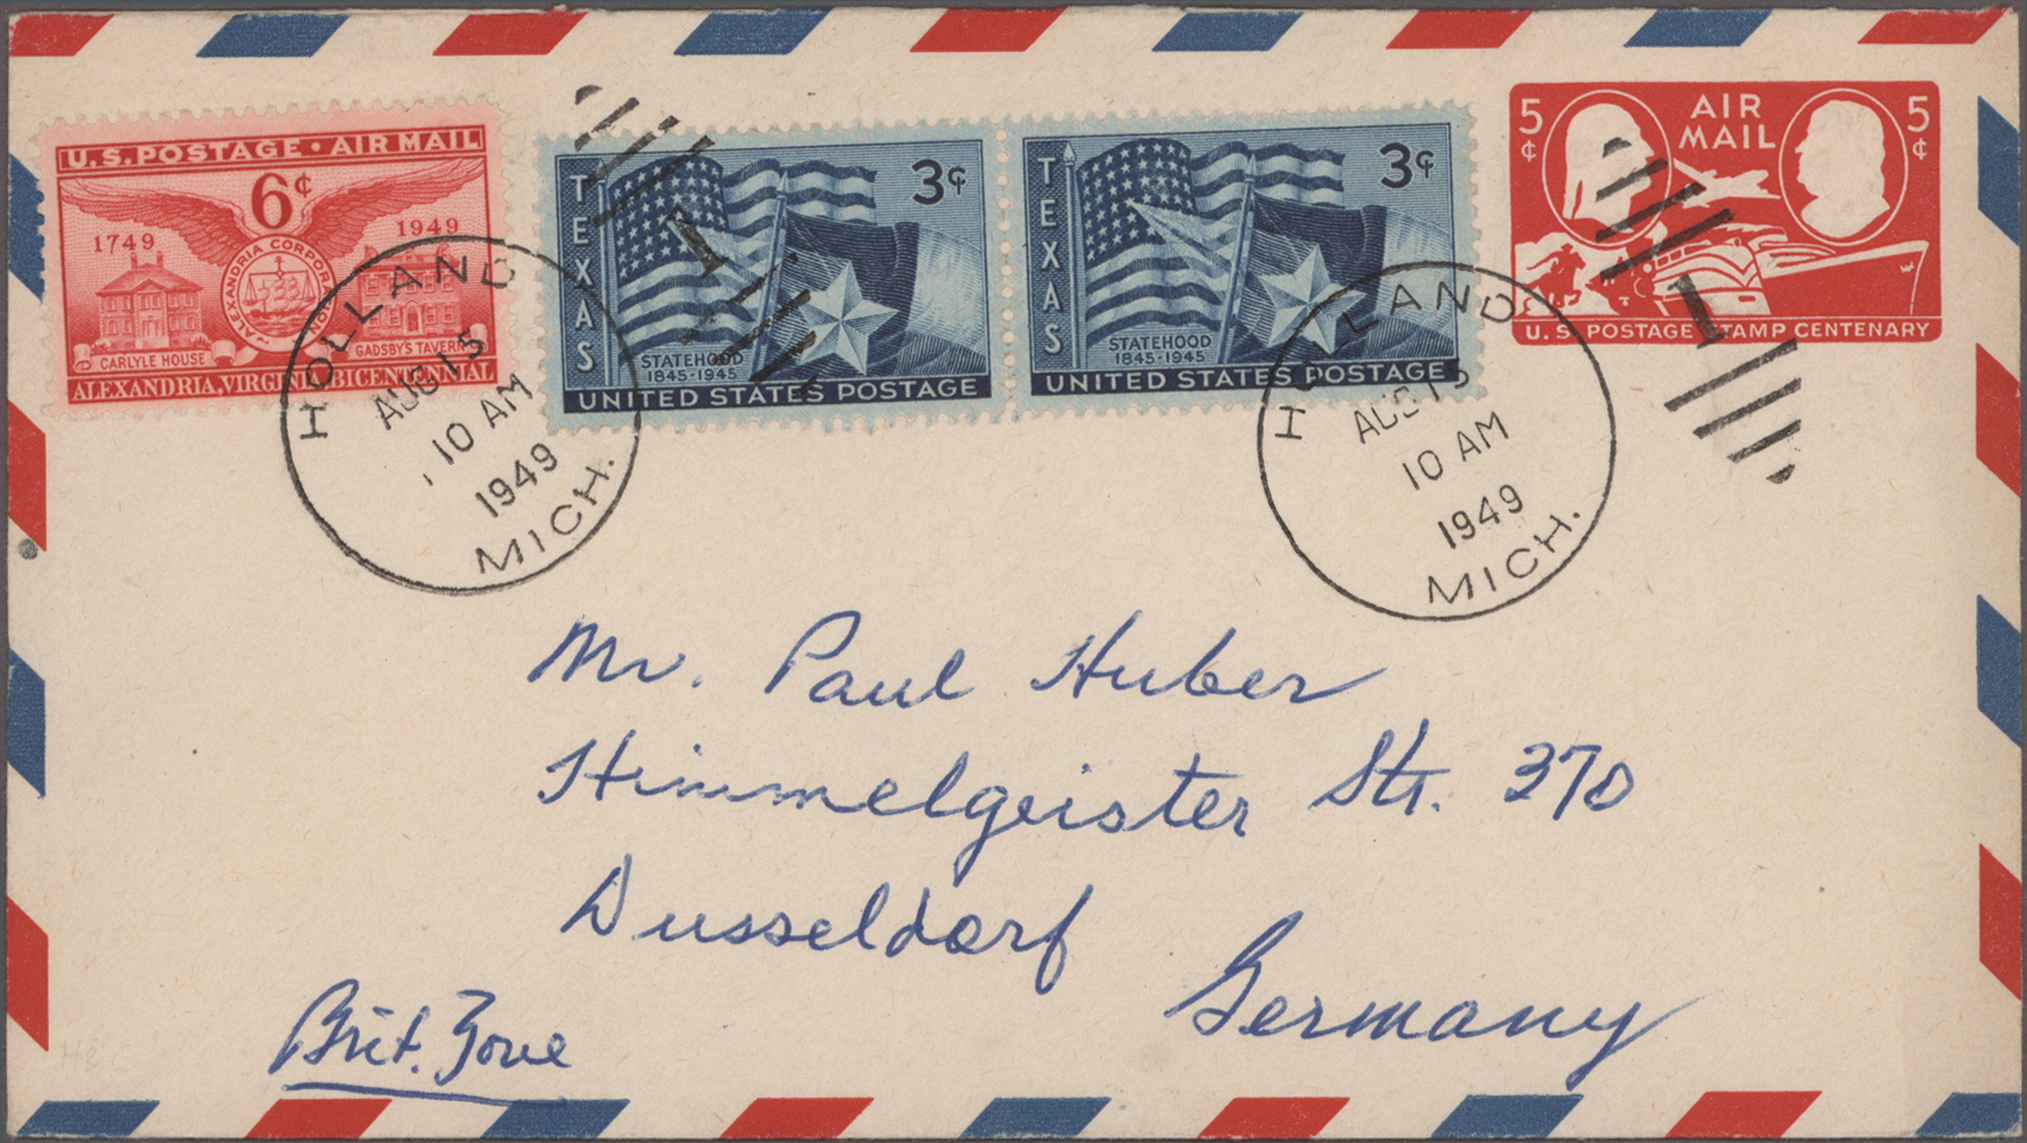 U.S. POSTAGE • AIR MAIL
6¢
1749
1949
ALEXANDRIA CORPORATION
CARLYLE HOUSE
GADSBY'S TAVERN
ALEXANDRIA, VIRGINIA BICENTENNIAL
TEXAS
3¢
STATEHOOD
1845-1945
UNITED STATES POSTAGE
TEXAS
3¢
STATEHOOD
1845-1945
UNITED STATES POSTAGE
5¢
AIR
MAIL
5¢
U.S. POSTAGE STAMP CENTENARY
HOLLAND
AUG 15
10 AM
1949
MICH.
1
HOLLAND
AUG 15
10 AM
1949
MICH.
1
Mr. Paul Huber
Himmelgeister Str. 370
Dusseldorf
Germany
Brit. Zone